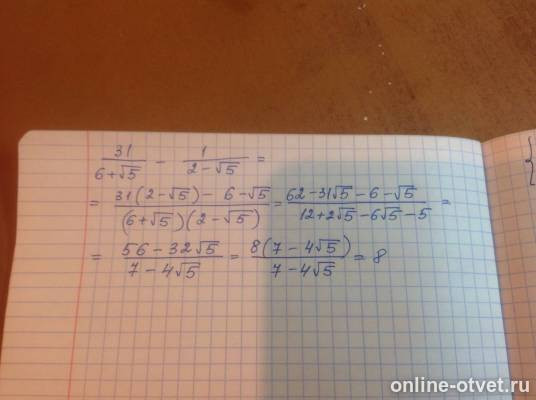 31/(6+√5) − 1/(2−√5) =
= (31(2−√5) − 6−√5)/((6+√5)(2−√5)) = (62−31√5−6−√5)/(12+2√5−6√5−5) =
= (56−32√5)/(7−4√5) = 8(7−4√5)/(7−4√5) = 8
online-otvet.ru